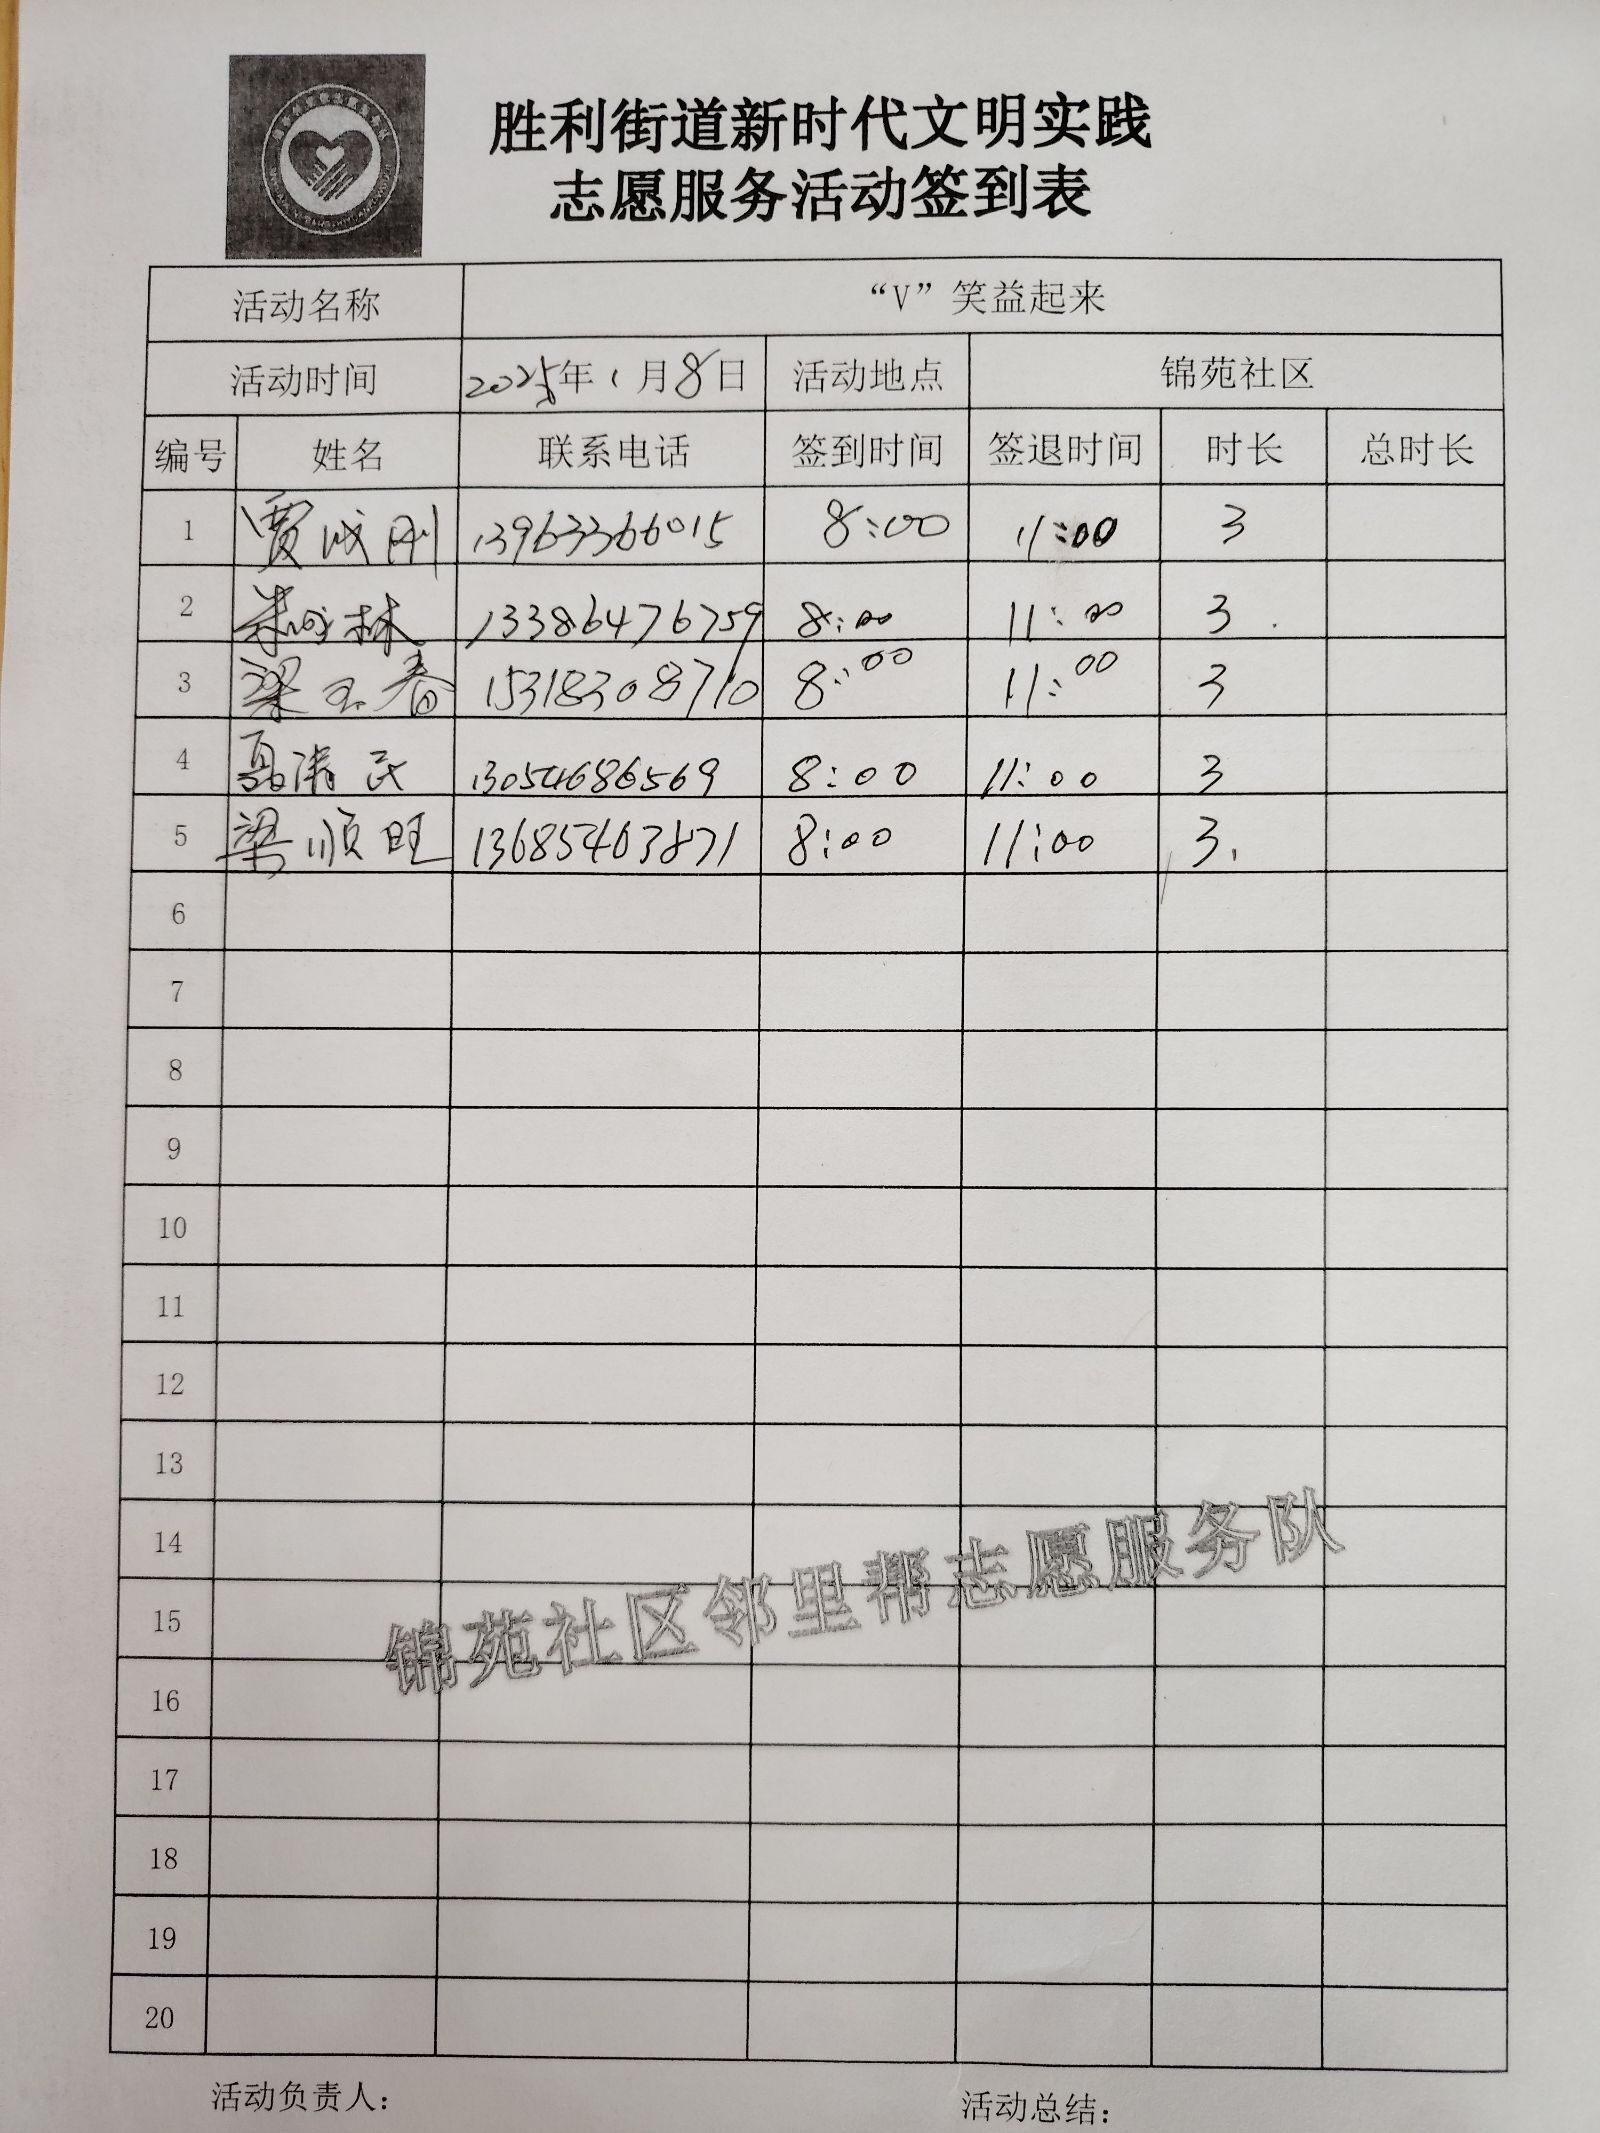 胜利街道新时代文明实践
志愿服务活动签到表
活动名称 “V”笑益起来
活动时间 2025年1月8日 活动地点 锦苑社区
编号 姓名 联系电话 签到时间 签退时间 时长 总时长
1 贾成刚 13963366015 8:00 11:00 3
2 林 13386476759 8:00 11:00 3
3 梁玉春 15318308710 8:00 11:00 3
4 聂清民 13054686569 8:00 11:00 3
5 梁顺旺 13685463871 8:00 11:00 3
6
7
8
9
10
11
12
13
14
15
16
17
18
19
20
锦苑社区邻里帮志愿服务队
活动负责人: 活动总结: